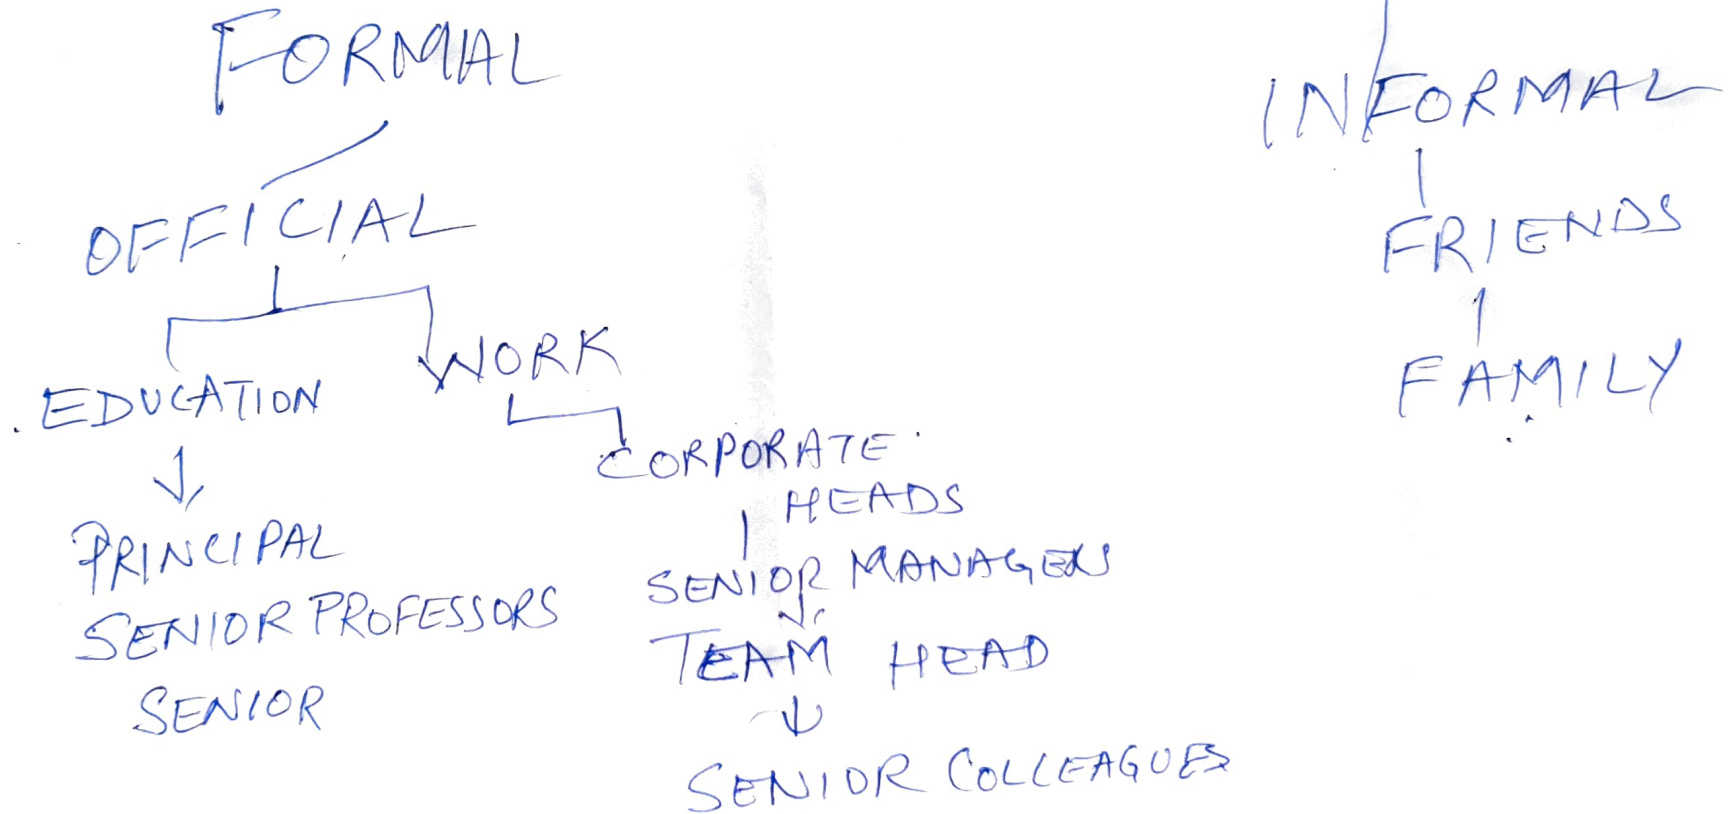 FORMAL
OFFICIAL
EDUCATION
PRINCIPAL
SENIOR PROFESSORS
SENIOR
WORK
CORPORATE
HEADS
SENIOR MANAGERS
TEAM HEAD
SENIOR COLLEAGUES
INFORMAL
FRIENDS
FAMILY